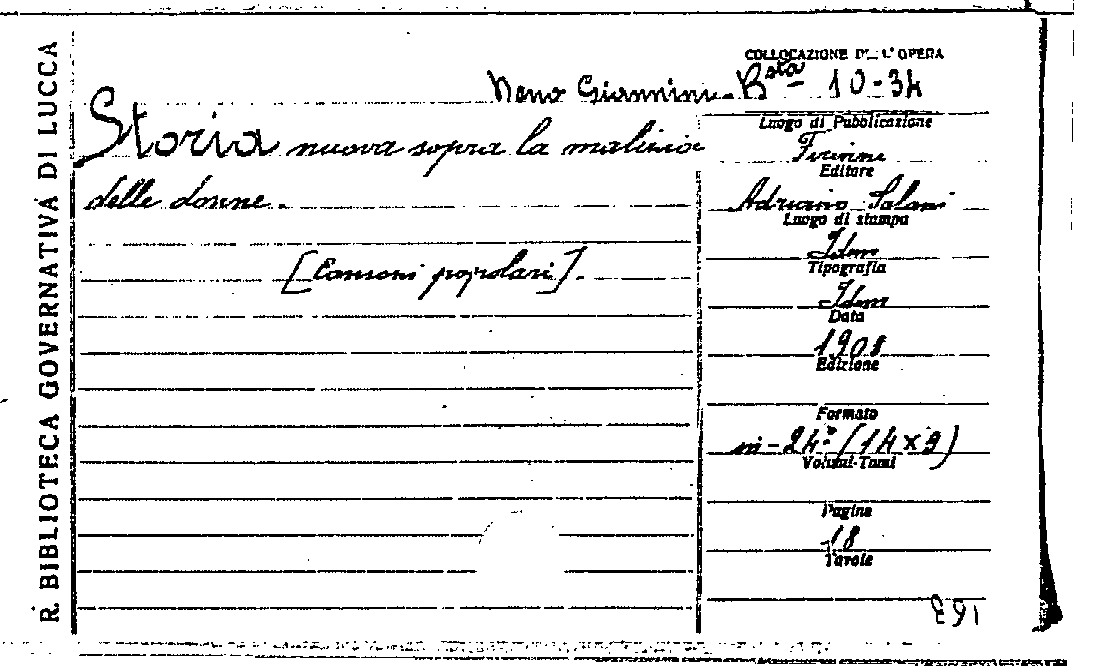 R. BIBLIOTECA GOVERNATIVA DI LUCCA
COLLOCAZIONE DELL'OPERA
Giannini - Bsta 10-34
Storia nuova sopra la malizia
delle donne.
[Canzoni popolari].
Luogo di Pubblicazione
Firenze
Editore
Adriano Salani
Luogo di stampa
Idem
Tipografia
Idem
Data
1908
Edizione
Formato
in-24° (14x9)
Volumi-Tomi
Pagine
18
Tavole
163